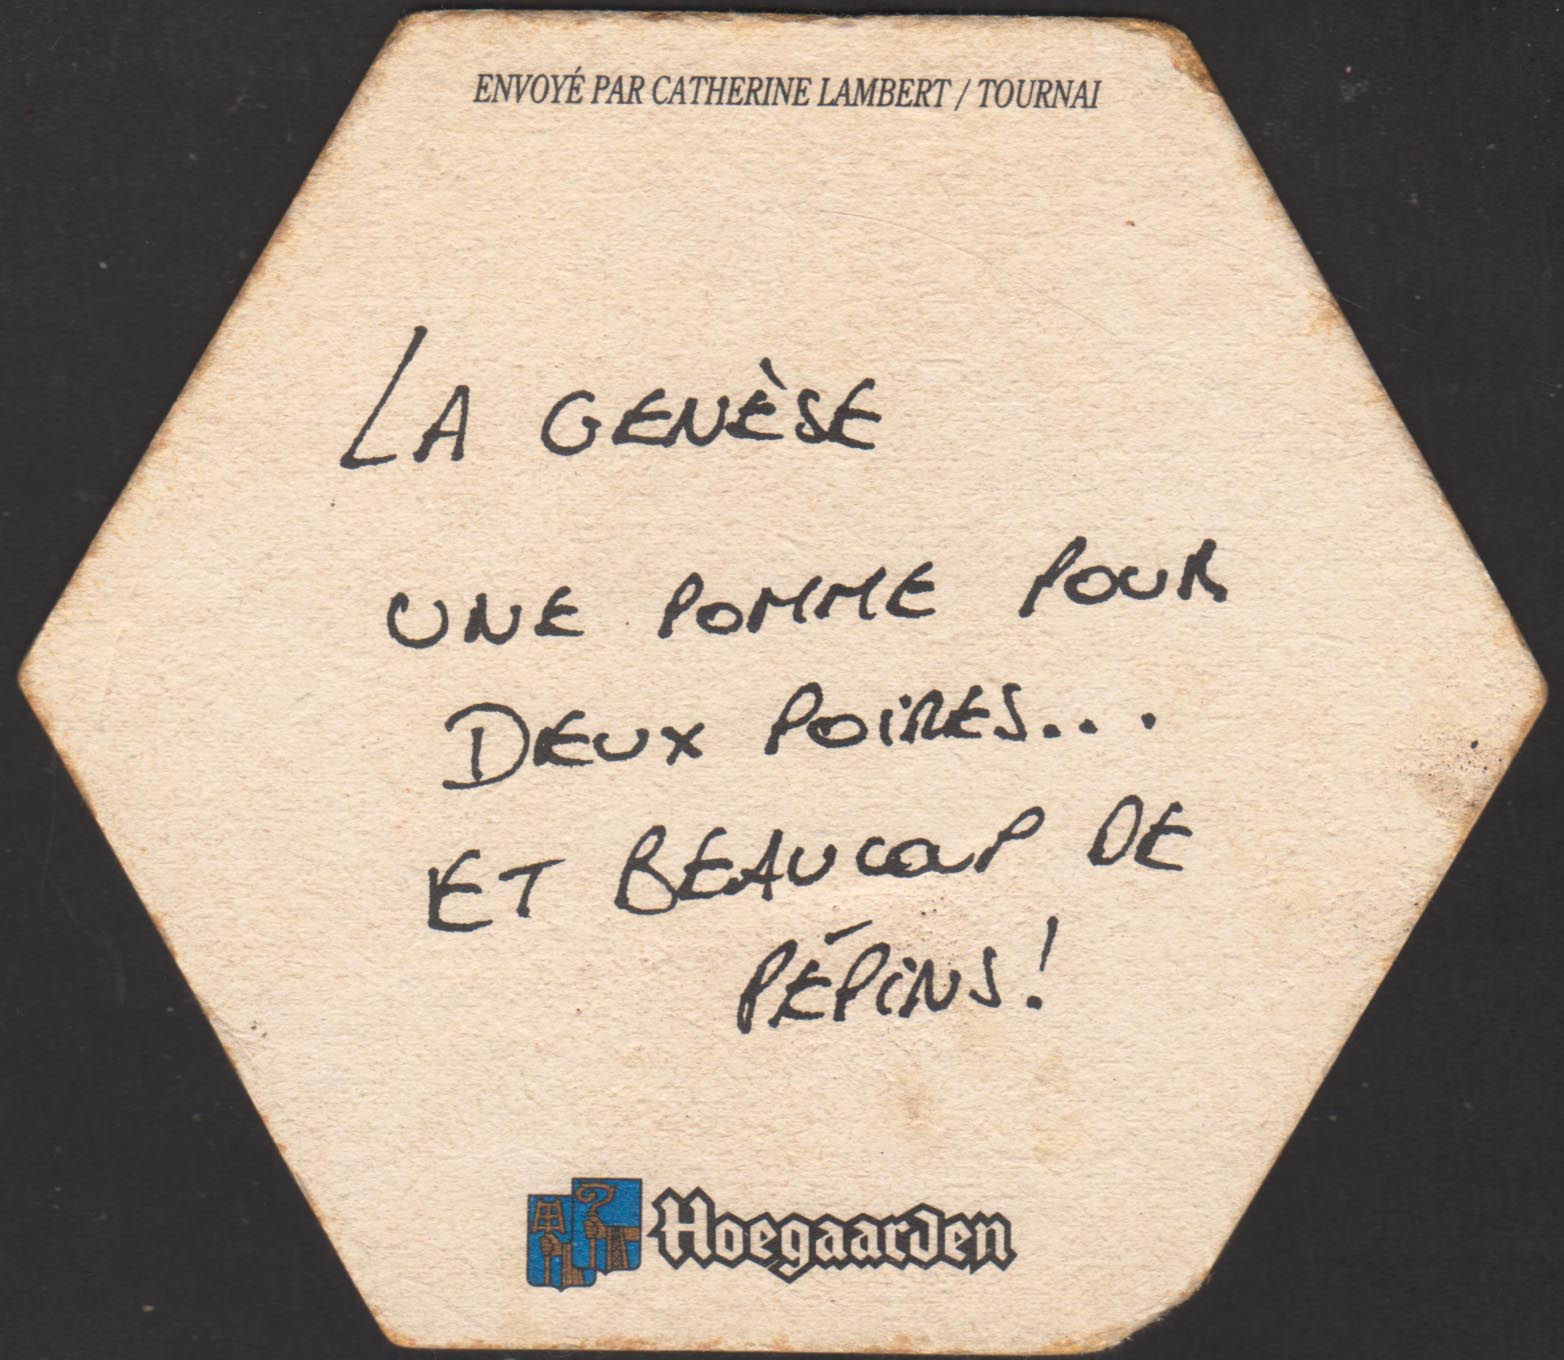 ENVOYÉ PAR CATHERINE LAMBERT / TOURNAI
LA GENÈSE
UNE POMME POUR
DEUX POIRES...
ET BEAUCOUP DE
PÉPINS!
Hoegaarden